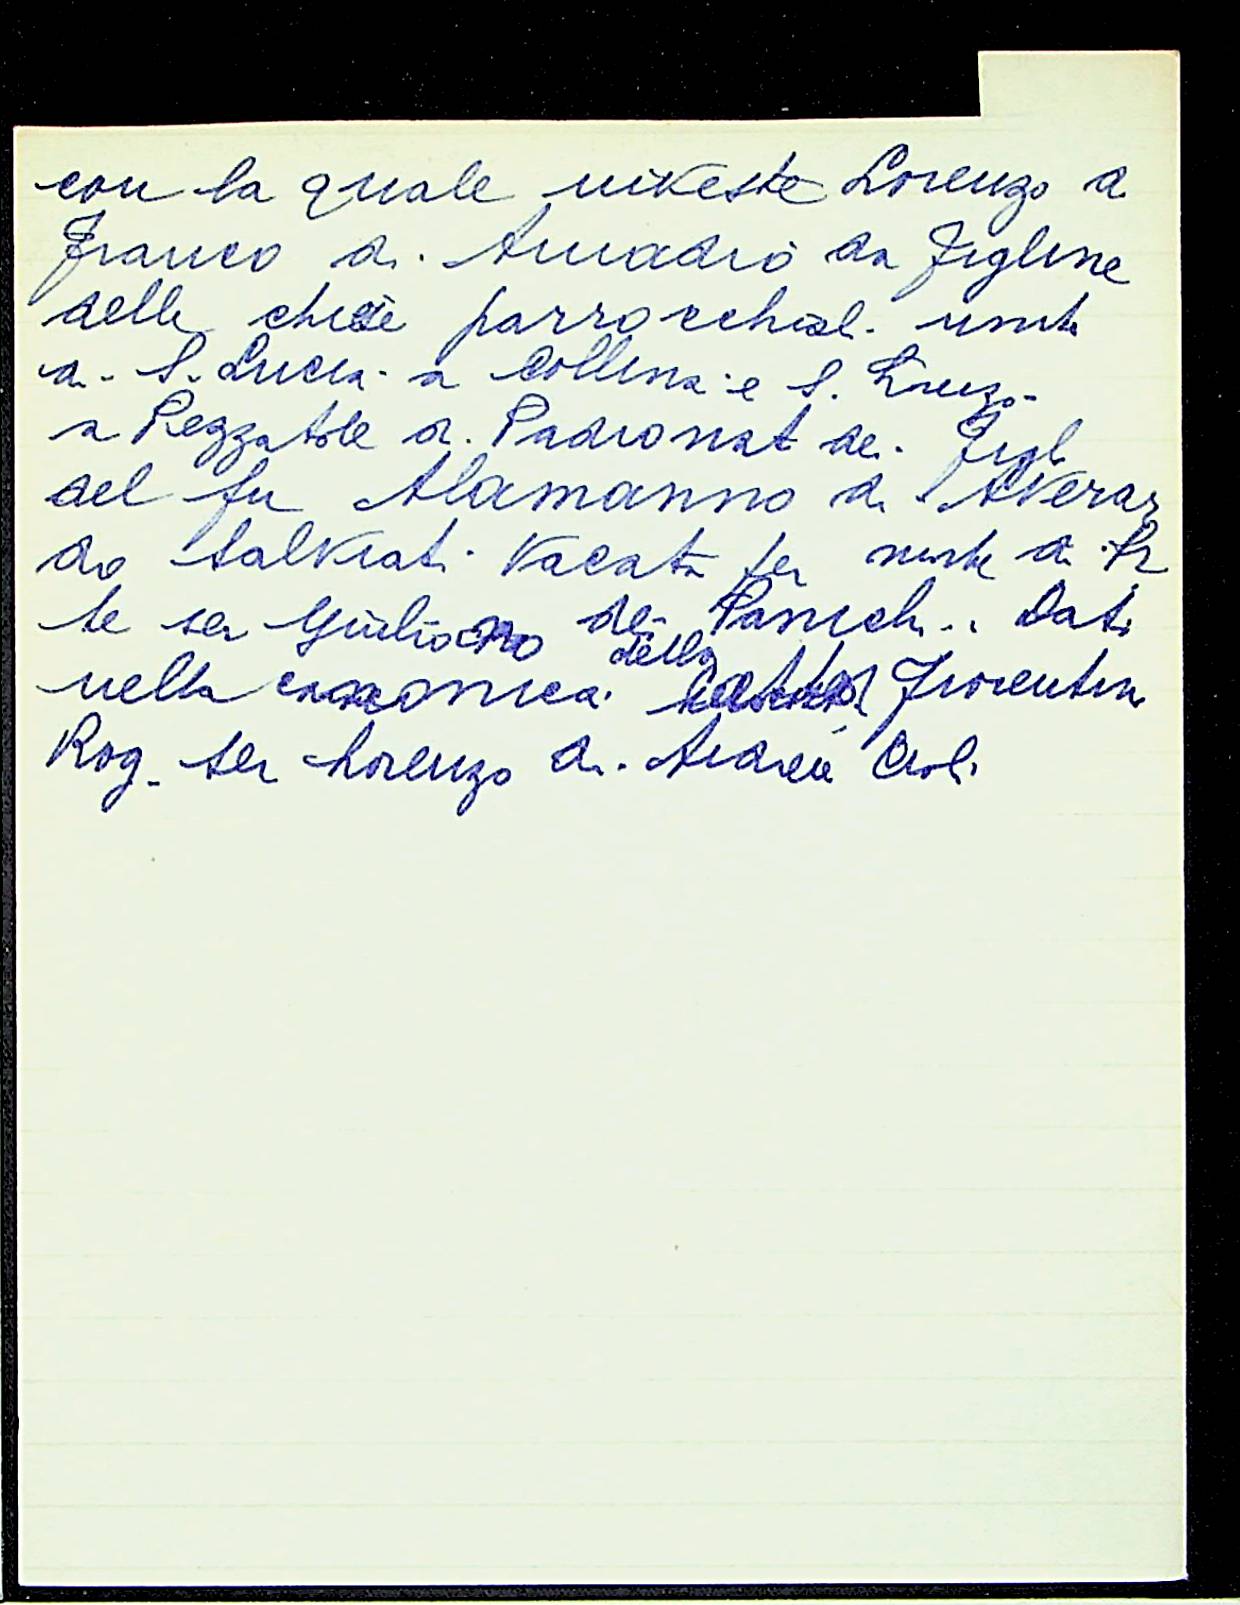 con la quale investe Lorenzo di
Franco di Amadio da Figline
delle chiese parrocchial. unite
di S. Lucia a Collina e S. Lorenzo
a Pezzatole di Padronat. dei Figl
del fu Alamanno di Averar
do Salviati. Vacata per morte di Pr
te ser Giuliano dei . Data
nella canonica della Fiorentina
Rog. ser Lorenzo di Andrea